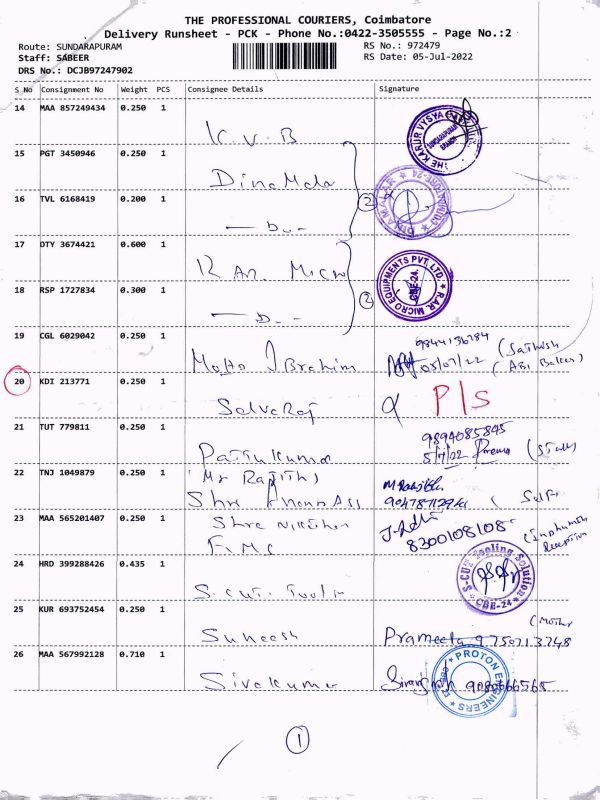 THE PROFESSIONAL COURIERS, Coimbatore
Delivery Runsheet - PCK - Phone No.:0422-3505555 - Page No.:2
Route: SUNDARAPURAM RS No.: 972479
Staff: SABEER RS Date: 05-Jul-2022
DRS No.: DCJB97247902
S_No Consignment No Weight PCS Consignee Details Signature
14 MAA 857249434 0.250 1
K.V.B
THE KARUR VYSYA SUNDARAPURAM BRANCH
15 PGT 3450946 0.250 1
Dinamala
16 TVL 6168419 0.200 1
2
DINAMALAR
— D. -
17 DTY 3674421 0.600 1
RAR. Micro
R.A.R. MICRO EQUIPMENTS PVT. LTD. CBE-24.
18 RSP 1727834 0.300 1
2
— D. -
19 CGL 6029042 0.250 1
Ibrahim
05/07/22 (Sathish
20 KDI 213771 0.250 1
Selvaraj
P/S
21 TUT 779811 0.250 1
9894085845
5/7/22 Prema
22 TNJ 1049879 0.250 1
Shre
23 MAA 565201407 0.250 1
Shre
F.M.C
8300108108
Reception
24 HRD 399288426 0.435 1
S.CUT. Tooln
S-CUT Tooling Solution CBE-24
25 KUR 693752454 0.250 1
Suneesh
(Mother
Prameela 9750713748
26 MAA 567992128 0.710 1
Sivakumar
PROTON ENGINEERS
1